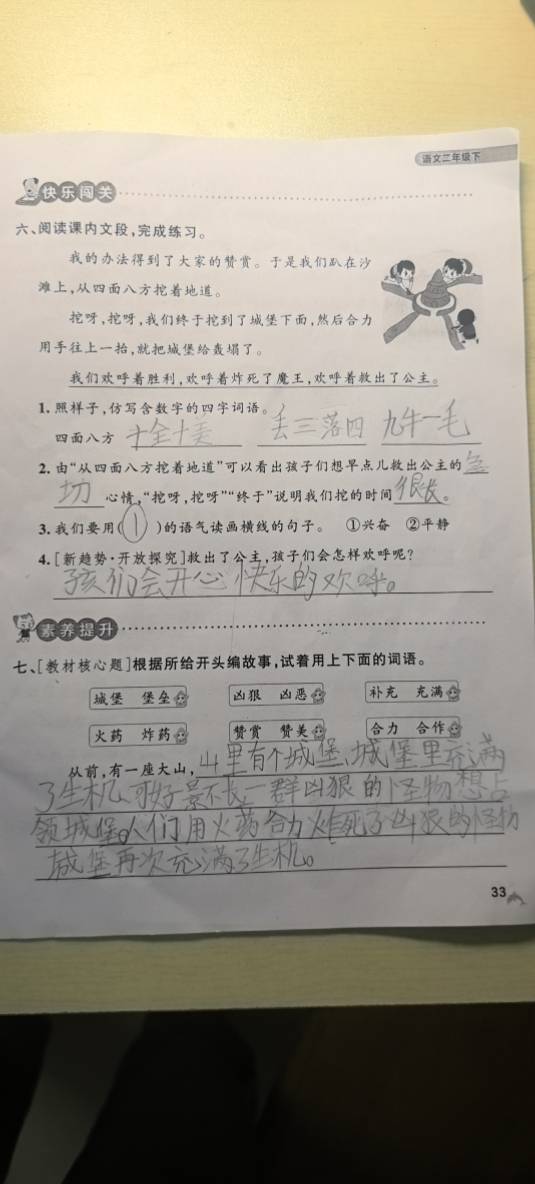 语文二年级下
快乐闯关
六、阅读课内文段,完成练习。
我的办法得到了大家的赞赏。于是我们趴在沙
滩上,从四面八方挖着地道。
挖呀,挖呀,我们终于挖到了城堡下面,然后合力
用手往上一抬,就把城堡给轰塌了。
我们欢呼着胜利,欢呼着炸死了魔王,欢呼着救出了公主。
1. 照样子,仿写含数字的四字词语。
四面八方 十全十美 丢三落四 九牛一毛
2. 由“从四面八方挖着地道”可以看出孩子们想早点儿救出公主的急
切心情,“挖呀,挖呀”“终于”说明我们挖的时间很长。
3. 我们要用(①)的语气读画横线的句子。 ①兴奋 ②平静
4. [新趋势·开放探究]救出了公主,孩子们会怎样欢呼呢?
孩们会开心快乐的欢呼。
素养提升
七、[教材核心题]根据所给开头编故事,试着用上下面的词语。
城堡 堡垒 凶狠 凶恶 补充 充满
火药 炸药 赞赏 赞美 合力 合作
从前,有一座大山,山里有个城堡,城堡里充满
了生机,可好景不长,一群凶狠的怪物想占
领城堡。人们用火药合力炸死了凶狠的怪物
城堡再次充满了生机。
33